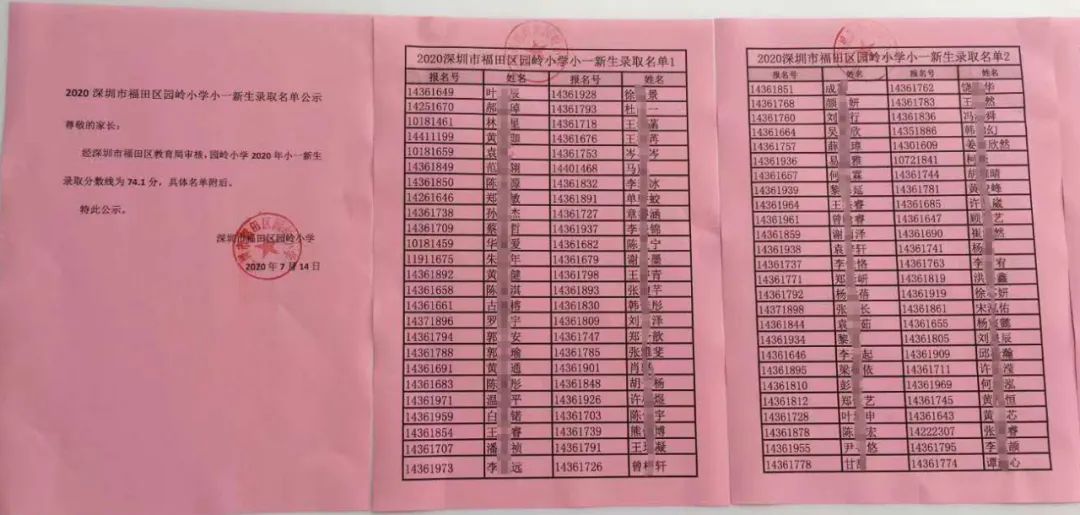 2020 深圳市福田区园岭小学小一新生录取名单公示
尊敬的家长：
经深圳市福田区教育局审核，园岭小学 2020 年小一新生
录取分数线为 74.1 分，具体名单附后。
特此公示。
深圳市福田区园岭小学
2020 年 7 月 14 日
2020深圳市福田区园岭小学小一新生录取名单1
报名号 姓名 报名号 姓名
14361649 叶 辰 14361928 徐 景
14251670 郝 璋 14361793 杜 一
10181461 林 里 14361718 王 菡
14411199 黄 珈 14361676 王 苒
10181659 袁 14361753 岑 岑
14361849 范 翊 14401468 马
14361850 陈 源 14361832 李 冰
14261646 郑 敏 14361891 单 蛟
14361738 孙 杰 14361727 章 涵
14361709 蔡 哲 14361937 李 锦
10181459 华 爱 14361682 陈 宁
11911675 朱 年 14361679 谢 墨
14361892 黄 健 14361798 王 青
14361658 陈 淇 14361893 张 芊
14361661 古 榕 14361830 韩 彤
14371896 罗 宇 14361809 刘 泽
14361794 郭 安 14361747 郑 歆
14361788 郭 瑜 14361785 张 斐
14361691 黄 通 14361901 肖
14361683 陈 彤 14361848 胡 杨
14361971 温 平 14361926 许 煜
14361959 白 锘 14361703 陈 宇
14361854 王 睿 14361739 熊 博
14361707 潘 祯 14361791 王 凝
14361973 李 远 14361726 曾 轩
2020深圳市福田区园岭小学小一新生录取名单2
报名号 姓名 报名号 姓名
14361851 成 14361762 饶 华
14361768 颜 妍 14361783 王 然
14361760 刘 行 14361836 冯 舜
14361664 吴 欣 14351886 韩 幻
14361757 薛 璋 14301609 姜 欣然
14361936 易 雅 10721841 柯
14361657 何 霖 14361744 胡 晴
14361939 黎 延 14361781 黄 峰
14361964 王 睿 14361685 许 崴
14361961 曾 睿 14361647 顾 艺
14361859 谢 泽 14361690 崔 然
14361938 袁 轩 14361741 杨
14361737 李 恪 14361763 李 宥
14361771 郑 研 14361819 洪 鑫
14361792 杨 蓓 14361919 徐 妍
14371898 张 长 14361861 宋 佑
14361844 袁 茹 14361655 杨 鹏
14361934 黎 14361805 刘 辰
14361646 李 起 14361909 邱 瀚
14361895 梁 依 14361711 许 滢
14361810 彭 14361969 何 泓
14361812 郑 艺 14361745 黄 恒
14361728 叶 申 14361643 黄 芯
14361878 陈 宏 14222307 张 睿
14361955 尹 悠 14361795 李 颉
14361778 甘 14361774 谭 心